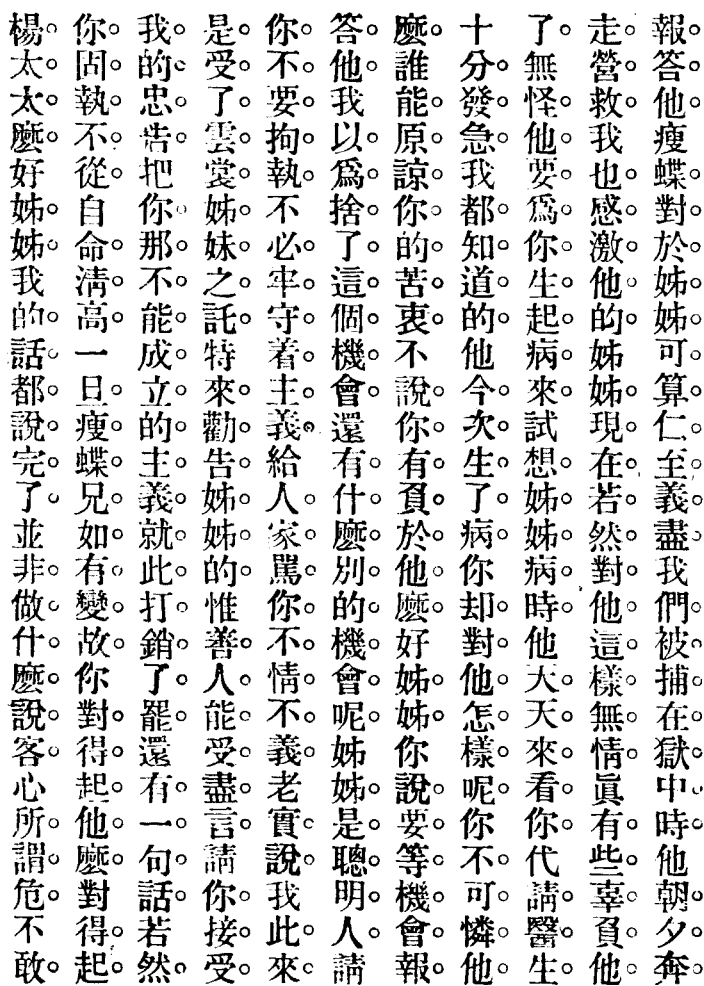 報答他瘦蝶對於姊姊可算仁至義盡我們被捕在獄中時他朝夕奔
走營救我也感激他的姊姊現在若然對他這樣無情眞有些辜負他
了無怪他要爲你生起病來試想姊姊病時他天天來看你代請醫生
十分發急我都知道的他今次生了病你却對他怎樣呢你不可憐他
麽誰能原諒你的苦衷不說你有負於他麽好姊姊你說要等機會報
答他我以爲捨了這個機會還有什麽別的機會呢姊姊是聰明人請
你不要拘執不必牢守着主義給人家罵你不情不義老實說我此來
是受了雲裳姊妹之託特來勸告姊姊的惟善人能受盡言請你接受
我的忠告把你那不能成立的主義就此打銷了罷還有一句話若然
你固執不從自命清高一旦瘦蝶兄如有變故你對得起他麽對得起
楊太太麽好姊姊我的話都說完了並非做什麽說客心所謂危不敢